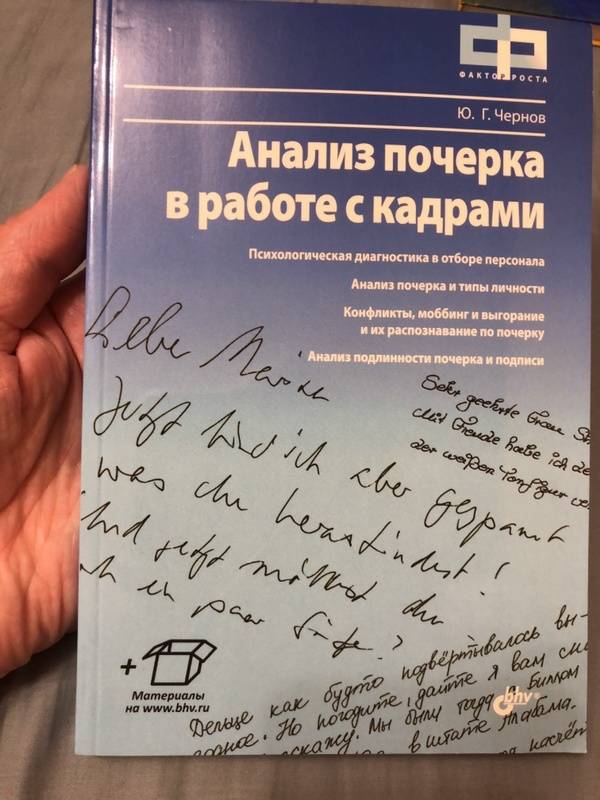 ФАКТОР РОСТА
Ю. Г. Чернов
Анализ почерка
в работе с кадрами
Психологическая диагностика в отборе персонала
Анализ почерка и типы личности
Конфликты, моббинг и выгорание
и их распознавание по почерку
Анализ подлинности почерка и подписи
Liebe Marion
Jetzt bin ich aber gespannt
was du herausfindest!
Und jetzt möchtest du
ein paar
Sehr geehrte Frau
mit Freude habe ich
der weißen
+
Материалы
на www.bhv.ru
bhv®
Дельце как будто подвёртывалось вы-
годное. Но погодите, дайте я вам
расскажу. Мы были тогда с Биллом
в штате Алабама.